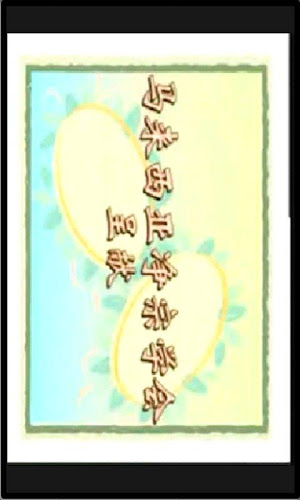 马来西亚净宗学会
呈献